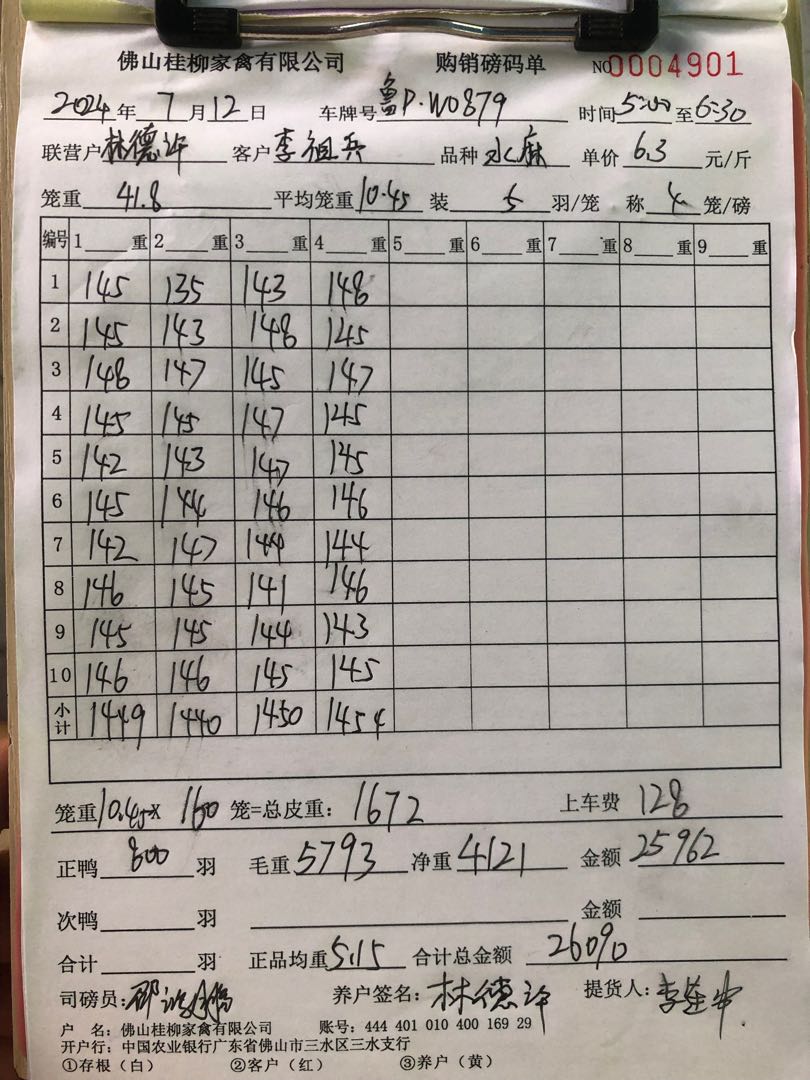 佛山桂柳家禽有限公司 购销磅码单 NO0004901
2024年7月12日 车牌号 鲁P·W0879 时间5:00至6:30
联营户 林德许 客户 李祖兵 品种 水麻 单价 6.3 元/斤
笼重 41.8 平均笼重 10.45 装 5 羽/笼 称 4 笼/磅
编号 1 重 2 重 3 重 4 重 5 重 6 重 7 重 8 重 9 重
1 145 135 143 148
2 145 143 148 145
3 148 147 145 147
4 145 145 147 145
5 142 143 147 145
6 145 144 146 146
7 142 147 144 144
8 146 145 141 146
9 145 145 144 143
10 146 146 145 145
小计 1449 1440 1450 1454
笼重 10.45× 160 笼=总皮重: 1672 上车费 128
正鸭 800 羽 毛重 5793 净重 4121 金额 25962
次鸭 羽 金额
合计 羽 正品均重 5.15 合计总金额 26090
司磅员: 养户签名: 林德许 提货人:
户 名: 佛山桂柳家禽有限公司 账号: 444 401 010 400 169 29
开户行: 中国农业银行广东省佛山市三水区三水支行
①存根(白) ②客户(红) ③养户(黄)